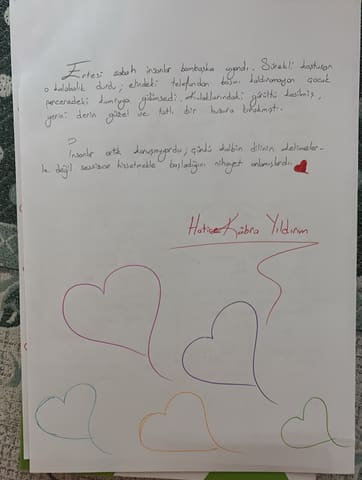 Ertesi sabah insanlar bambaşka uyandı. Sürekli koşturan
o kalabalık durdu; elindeki telefondan başını kaldıramayan çocuk
penceredeki kumruya gülümsedi. Kulaklarındaki gürültü kesilmiş,
yerini derin güzel ve tatlı bir huzura bırakmıştı.
İnsanlar artık konuşmuyordu; çünkü kalbin dilinin kelimeler-
le değil sessizce hissetmekle başladığını nihayet anlamışlardı
Hatice Kübra Yıldırım